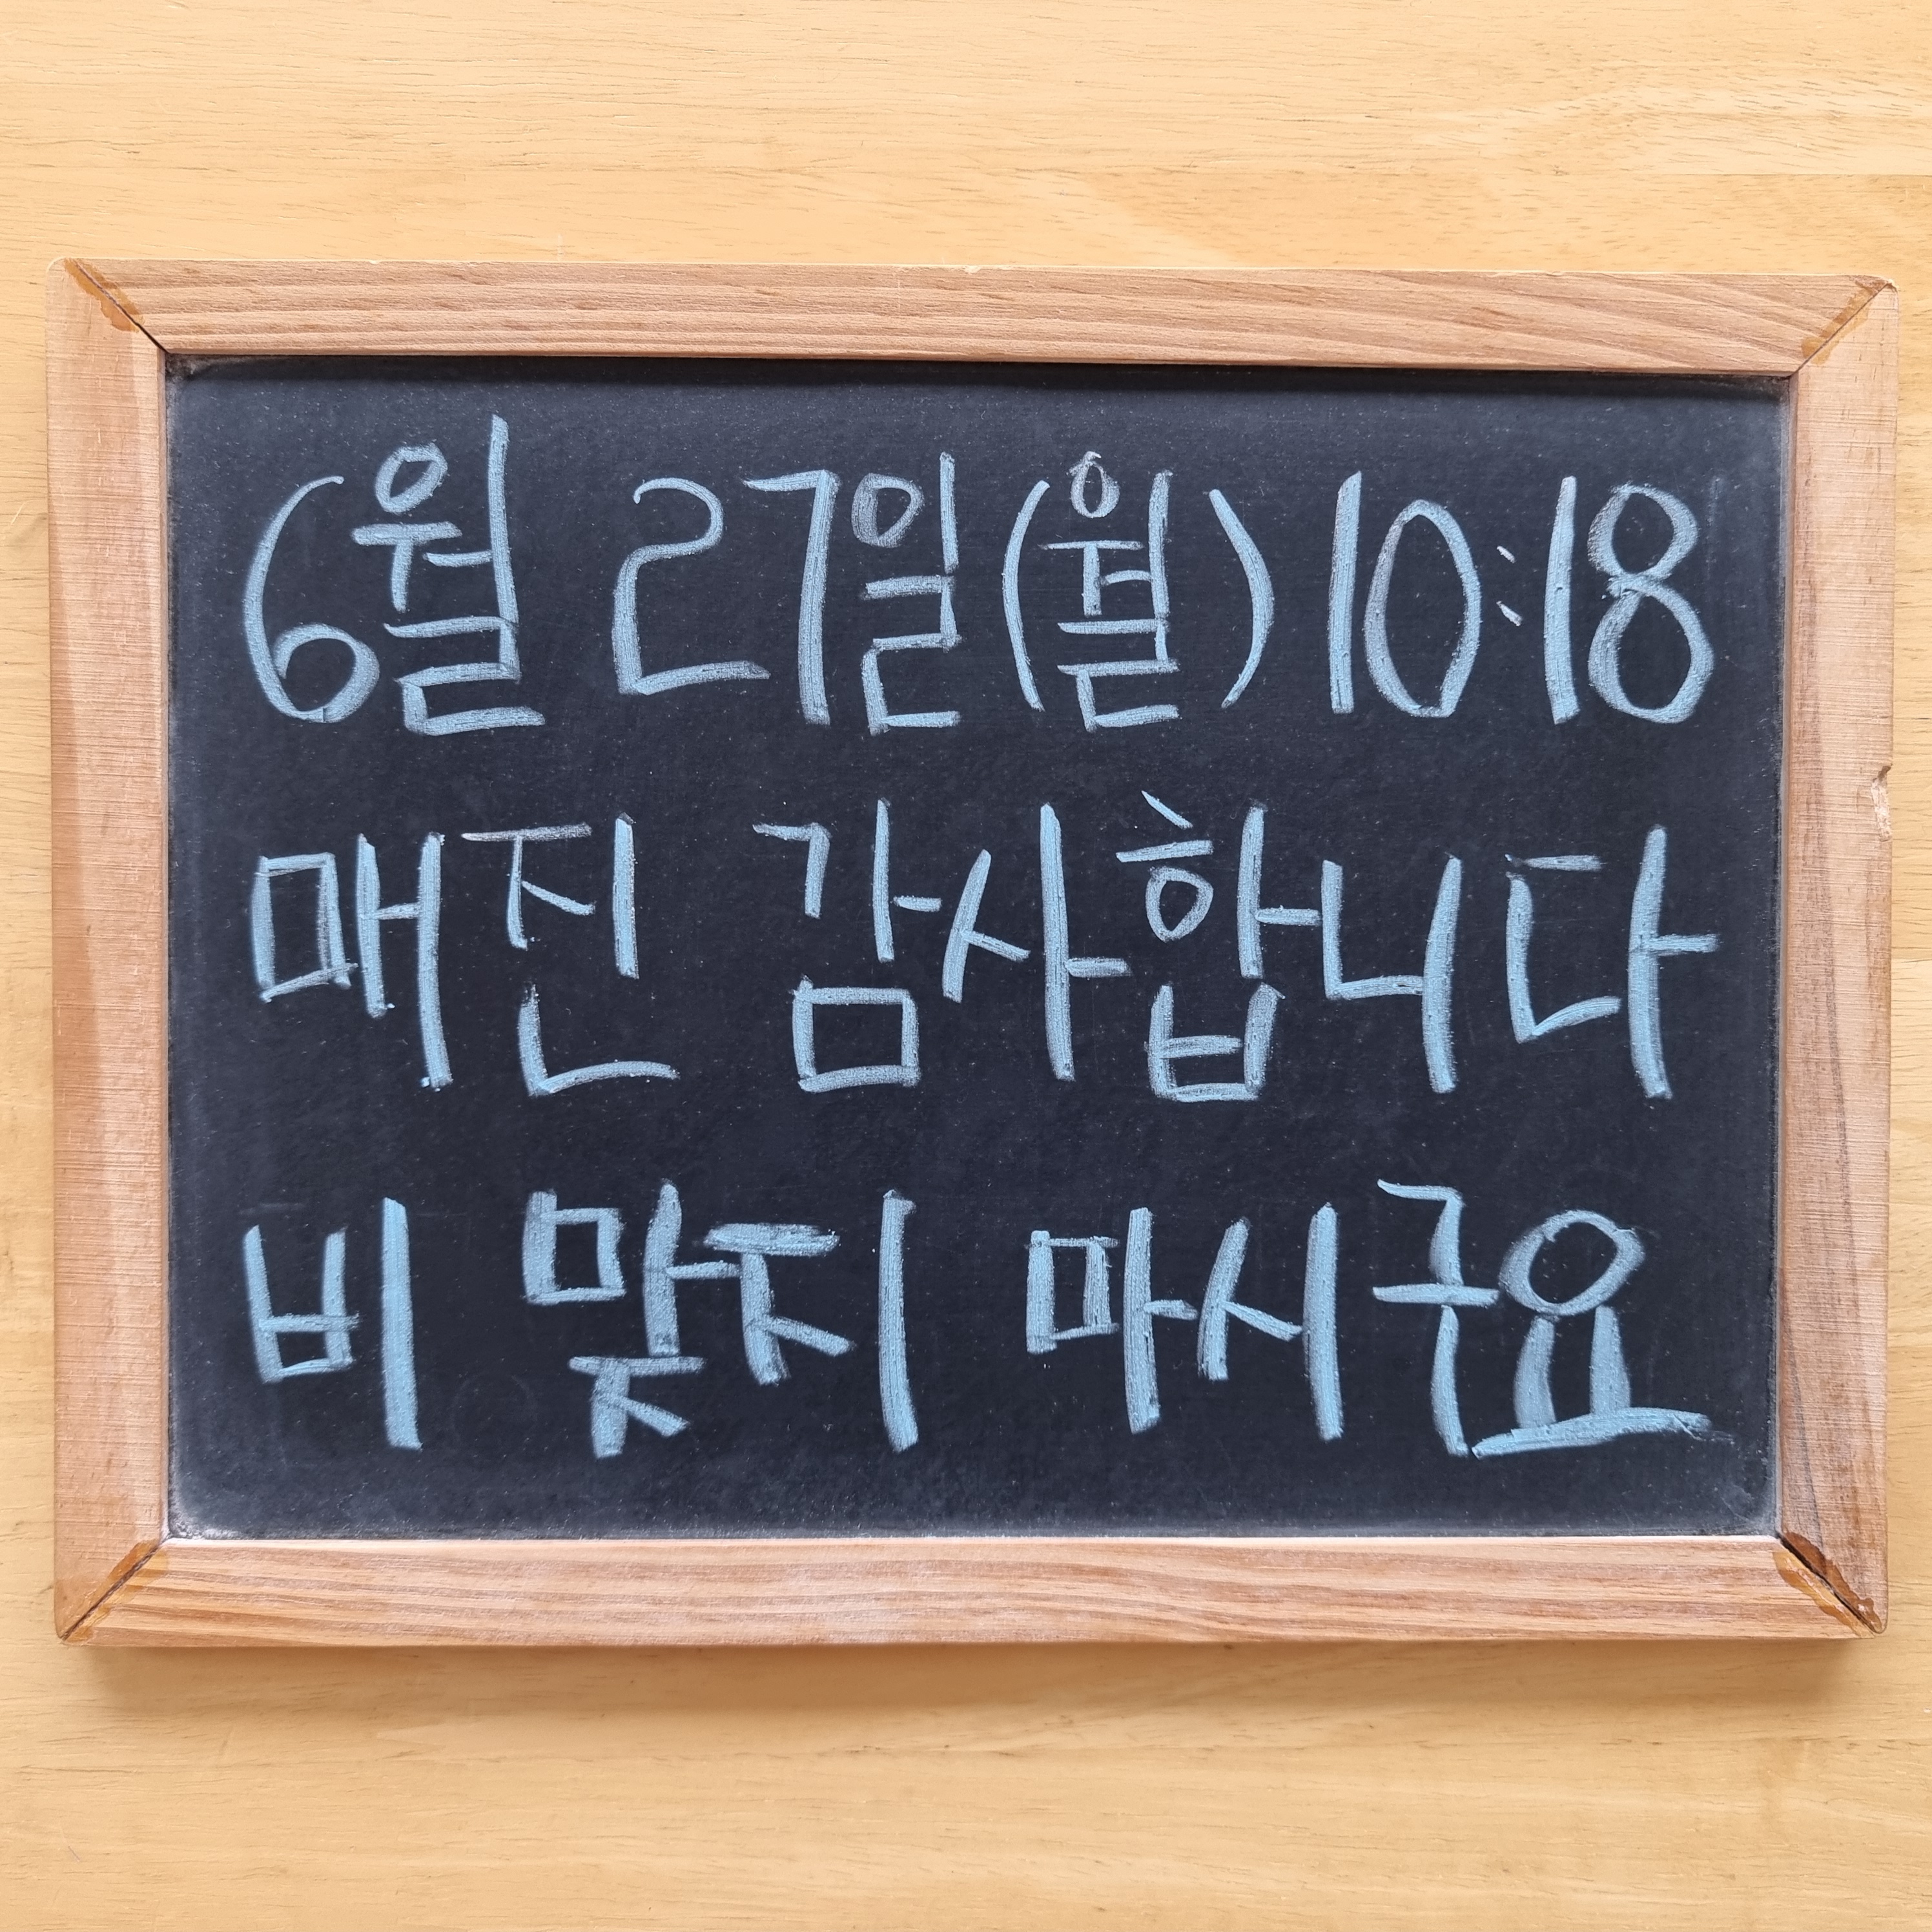 6월 27일(월) 10:18
매진 감사합니다
비 맞지 마시구요